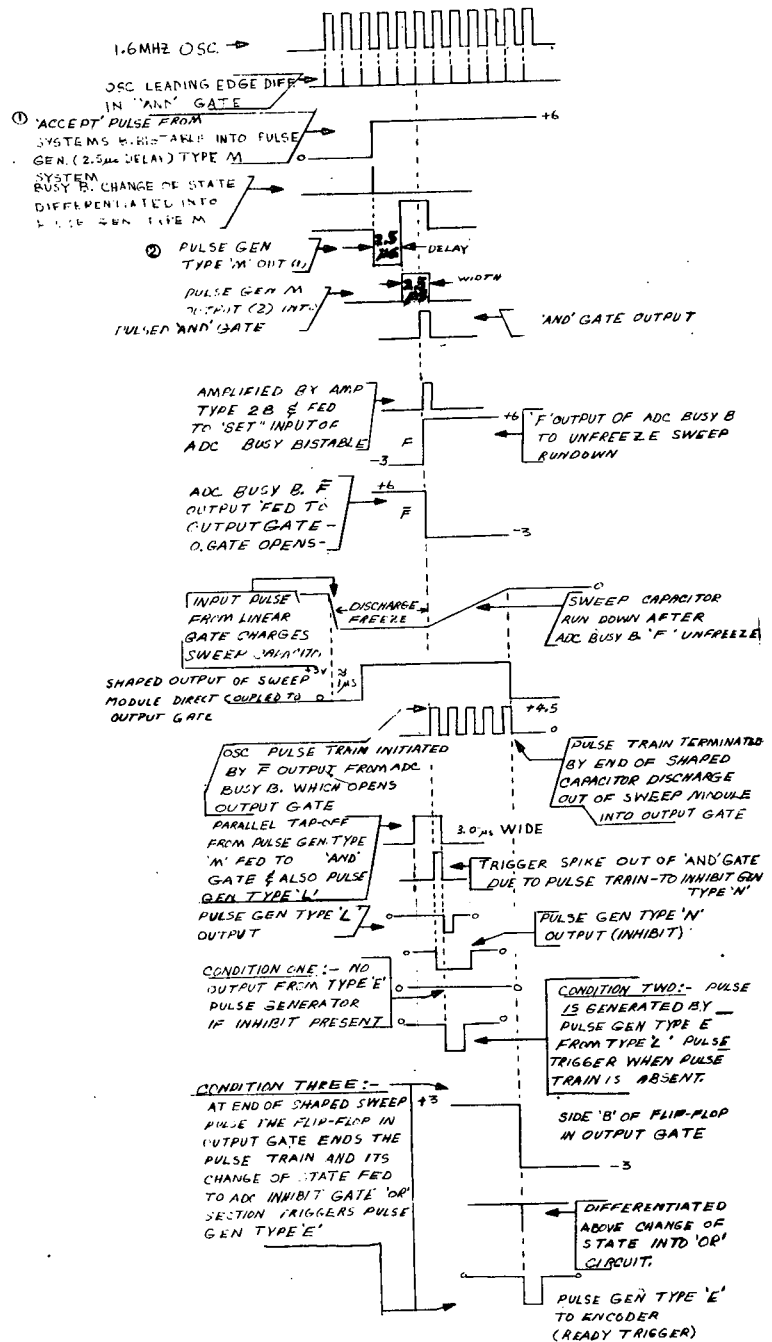 1.6MHZ OSC.
OSC LEADING EDGE DIFF
IN "AND" GATE
① 'ACCEPT' PULSE FROM
SYSTEMS B. BISTABLE INTO PULSE
GEN. (2.5μs DELAY) TYPE M
+6
0
SYSTEM
BUSY B. CHANGE OF STATE
DIFFERENTIATED INTO
PULSE GEN TYPE M
② PULSE GEN
TYPE 'M' OUT (1)
2.5
μs
DELAY
PULSE GEN M
OUTPUT (2) INTO
PULSED 'AND' GATE
2.5
WIDTH
'AND' GATE OUTPUT
AMPLIFIED BY AMP
TYPE 2B & FED
TO "SET" INPUT OF
ADC BUSY BISTABLE
F
-3
+6
'F' OUTPUT OF ADC BUSY B
TO UNFREEZE SWEEP
RUNDOWN
ADC BUSY B. F̅
OUTPUT FED TO
OUTPUT GATE -
O.GATE OPENS-
+6
F̅
-3
INPUT PULSE
FROM LINEAR
GATE CHARGES
SWEEP CAPACITOR
DISCHARGE
FREEZE
0
SWEEP CAPACITOR
RUN DOWN AFTER
ADC BUSY B. 'F' UNFREEZE
SHAPED OUTPUT OF SWEEP
MODULE DIRECT COUPLED TO
OUTPUT GATE
+3V
0
≈
1μs
+4.5
0
OSC PULSE TRAIN INITIATED
BY F̅ OUTPUT FROM ADC
BUSY B. WHICH OPENS
OUTPUT GATE
PULSE TRAIN TERMINATED
BY END OF SHAPED
CAPACITOR DISCHARGE
OUT OF SWEEP MODULE
INTO OUTPUT GATE
PARALLEL TAP-OFF
FROM PULSE GEN. TYPE
'M' FED TO 'AND'
GATE & ALSO PULSE
GEN TYPE 'L'
3.0 μs WIDE
TRIGGER SPIKE OUT OF 'AND' GATE
DUE TO PULSE TRAIN-TO INHIBIT GEN
TYPE 'N'
PULSE GEN TYPE 'L'
OUTPUT
0
0
PULSE GEN TYPE 'N'
OUTPUT (INHIBIT)
0
0
CONDITION ONE:- NO
OUTPUT FROM TYPE 'E'
PULSE GENERATOR
IF INHIBIT PRESENT
0
0
0
0
CONDITION TWO:- PULSE
IS GENERATED BY
PULSE GEN TYPE E
FROM TYPE 'L' PULSE
TRIGGER WHEN PULSE
TRAIN IS ABSENT.
CONDITION THREE:-
AT END OF SHAPED SWEEP
PULSE THE FLIP-FLOP IN
OUTPUT GATE ENDS THE
PULSE TRAIN AND ITS
CHANGE OF STATE FED
TO ADC INHIBIT GATE 'OR'
SECTION TRIGGERS PULSE
GEN TYPE 'E'
+3
SIDE 'B' OF FLIP-FLOP
IN OUTPUT GATE
-3
DIFFERENTIATED
ABOVE CHANGE OF
STATE INTO 'OR'
CIRCUIT.
0
0
PULSE GEN TYPE 'E'
TO ENCODER
(READY TRIGGER)